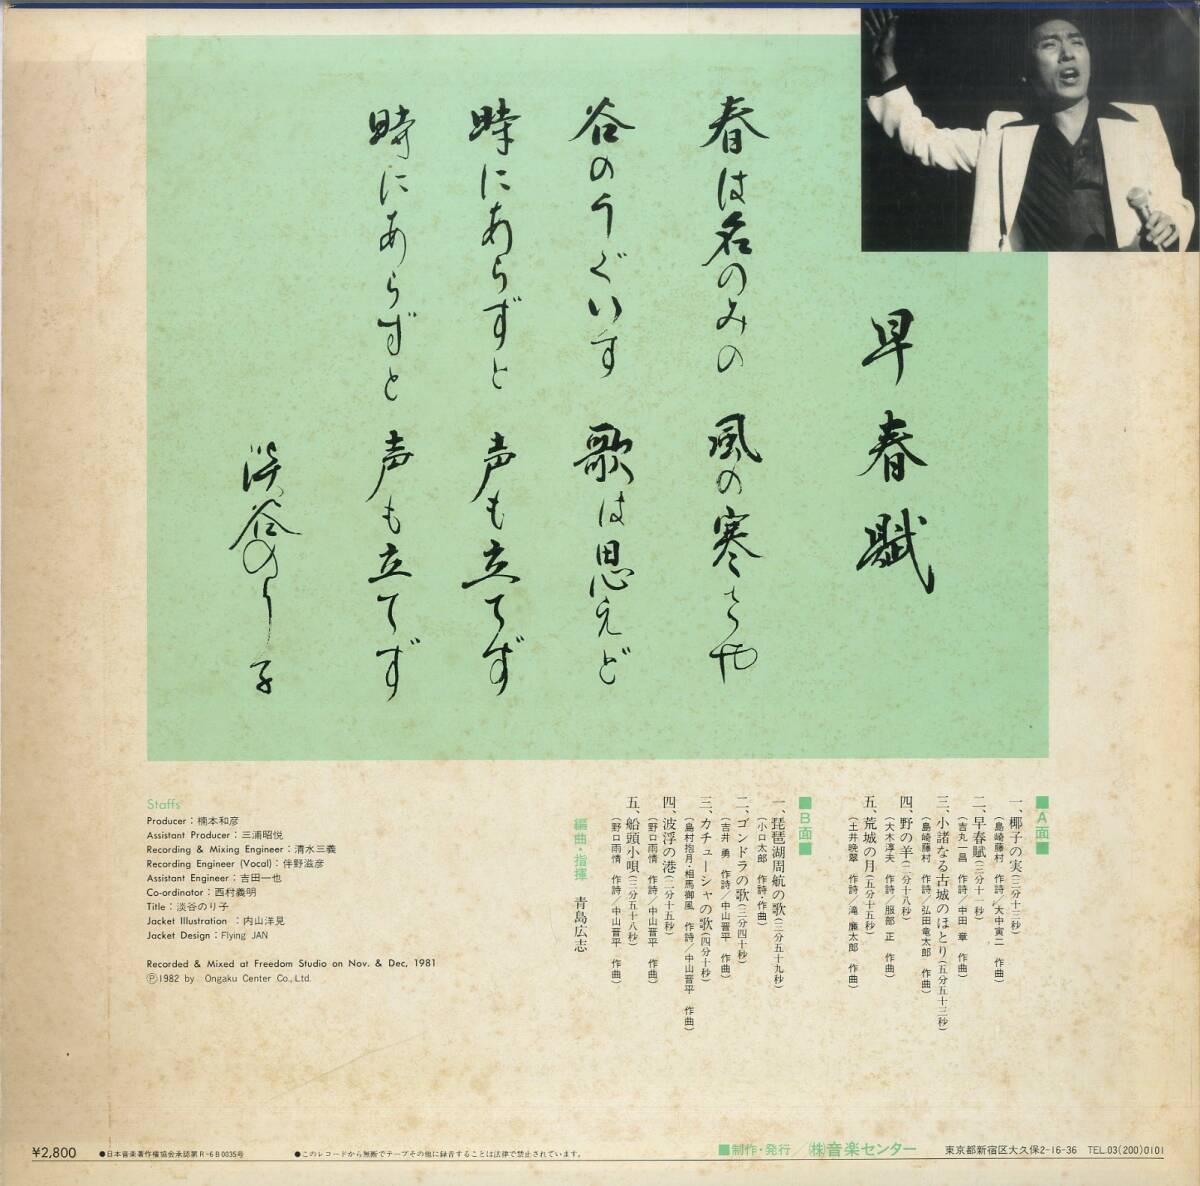 早春賦
春は名のみの 風の寒さや
谷のうぐいす 歌は思えど
時にあらずと 声も立てず
時にあらずと 声も立てず
淡谷のり子
■A面■
一、椰子の実(三分十三秒)
(島崎藤村 作詩/大中寅二 作曲)
二、早春賦(三分十一秒)
(吉丸一昌 作詩/中田 章 作曲)
三、小諸なる古城のほとり(五分五十三秒)
(島崎藤村 作詩/弘田竜太郎 作曲)
四、野の羊(二分十八秒)
(大木淳夫 作詩/服部 正 作曲)
五、荒城の月(五分十五秒)
(土井晩翠 作詩/滝 廉太郎 作曲)
■B面■
一、琵琶湖周航の歌(三分五十九秒)
(小口太郎 作詩・作曲)
二、ゴンドラの歌(三分四十秒)
(吉井 勇 作詩/中山晋平 作曲)
三、カチューシャの歌(四分十秒)
(島村抱月・相馬御風 作詩/中山晋平 作曲)
四、波浮の港(二分十五秒)
(野口雨情 作詩/中山晋平 作曲)
五、船頭小唄(三分五十八秒)
(野口雨情 作詩/中山晋平 作曲)
編曲・指揮 青島広志
Staffs
Producer：楠本和彦
Assistant Producer：三浦昭悦
Recording & Mixing Engineer：清水三義
Recording Engineer (Vocal)：伴野滋彦
Assistant Engineer：吉田一也
Co-ordinator：西村義明
Title：淡谷のり子
Jacket Illustration ：内山洋見
Jacket Design：Flying JAN
Recorded & Mixed at Freedom Studio on Nov. & Dec, 1981
Ⓟ1982 by Ongaku Center Co., Ltd.
¥2,800 ●日本音楽著作権協会承認第R-6B0035号 ●このレコードから無断でテープその他に録音することは法律で禁止されています。 ■制作・発行/㈱音楽センター 東京都新宿区大久保2-16-36 TEL.03(200)0101